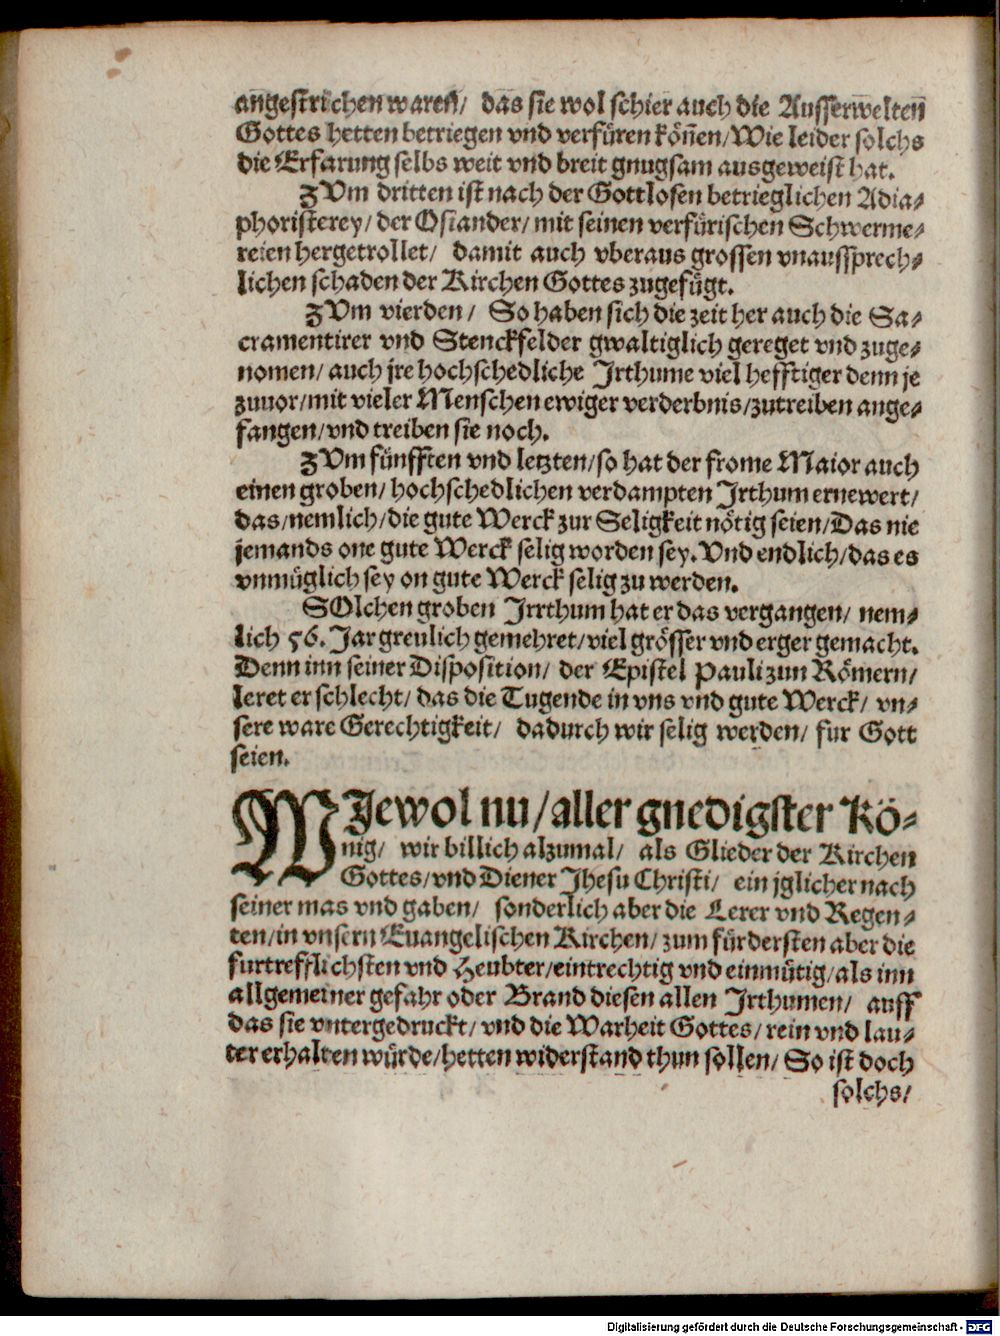 angestrichen waren/ das sie wol schier auch die Ausserwelten
Gottes hetten betriegen vnd verfüren köñen/Wie leider solchs
die Erfarung selbs weit vnd breit gnugsam ausgeweist hat.
ZVm dritten ist nach der Gottlosen betrieglichen Adia-
phoristerey/ der Osiander/ mit seinen verfürischen Schwerme-
reien hergetrollet/ damit auch vberaus grossen vnaussprech-
lichen schaden der Kirchen Gottes zugefügt.
ZVm vierden/ So haben sich die zeit her auch die Sa-
cramentirer vnd Stenckfelder gwaltiglich gereget vnd zuge-
nomen/ auch jre hochschedliche Irthume viel hefftiger denn je
zuuor/mit vieler Menschen ewiger verderbnis/zutreiben ange-
fangen/vnd treiben sie noch.
ZVm fünfften vnd letzten/so hat der frome Maior auch
einen groben/ hochschedlichen verdampten Irthum ernewert/
das/nemlich/die gute Werck zur Seligkeit nötig seien/Das nie
jemands one gute Werck selig worden sey. Vnd endlich/das es
vnmüglich sey on gute Werck selig zu werden.
SOlchen groben Irrthum hat er das vergangen/ nem-
lich 56. Jar greulich gemehret/viel grösser vnd erger gemacht.
Denn inn seiner Disposition/ der Epistel Pauli zun Römern/
leret er schlecht/ das die Tugende in vns vnd gute Werck/ vn-
sere ware Gerechtigkeit/ dadurch wir selig werden/ fur Gott
seien.
WIewol nu/aller gnedigster Kö-
nig/ wir billich alzumal/ als Glieder der Kirchen
Gottes/vnd Diener Jhesu Christi/ ein jglicher nach
seiner mas vnd gaben/ sonderlich aber die Lerer vnd Regen-
ten/in vnsern Euangelischen Kirchen/ zum fürdersten aber die
furtrefflichsten vnd Heubter/eintrechtig vnd einmütig/als inn
allgemeiner gefahr oder Brand diesen allen Irthumen/ auff
das sie vntergedruckt/ vnd die Warheit Gottes/ rein vnd lau-
ter erhalten würde/hetten widerstand thun sollen/ So ist doch
solchs/
Digitalisierung gefördert durch die Deutsche Forschungsgemeinschaft - DFG